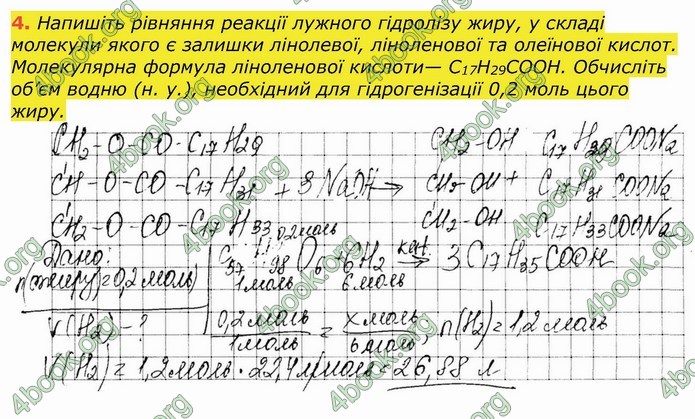 4. Напишіть рівняння реакції лужного гідролізу жиру, у складі
молекули якого є залишки лінолевої, ліноленової та олеїнової кислот.
Молекулярна формула ліноленової кислоти— C₁₇H₂₉COOH. Обчисліть
об'єм водню (н. у.), необхідний для гідрогенізації 0,2 моль цього
жиру.
CH₂-O-CO-C₁₇H₂₉ CH₂-OH C₁₇H₂₉COONa
CH-O-CO-C₁₇H₃₁ + 3NaOH → CH₂-OH + C₁₇H₃₁COONa
CH₂-O-CO-C₁₇H₃₃ CH₂-OH C₁₇H₃₃COONa
Дано: 0,2моль
n(жиру)=0,2моль C₅₇H₉₈O₆+6H₂ кат. → 3C₁₇H₃₅COOH
1моль 6моль
V(H₂)-? 0,2моль/1моль = xмоль/6моль, n(H₂)=1,2моль
V(H₂)=1,2моль·22,4л/моль=26,88 л
4book.org